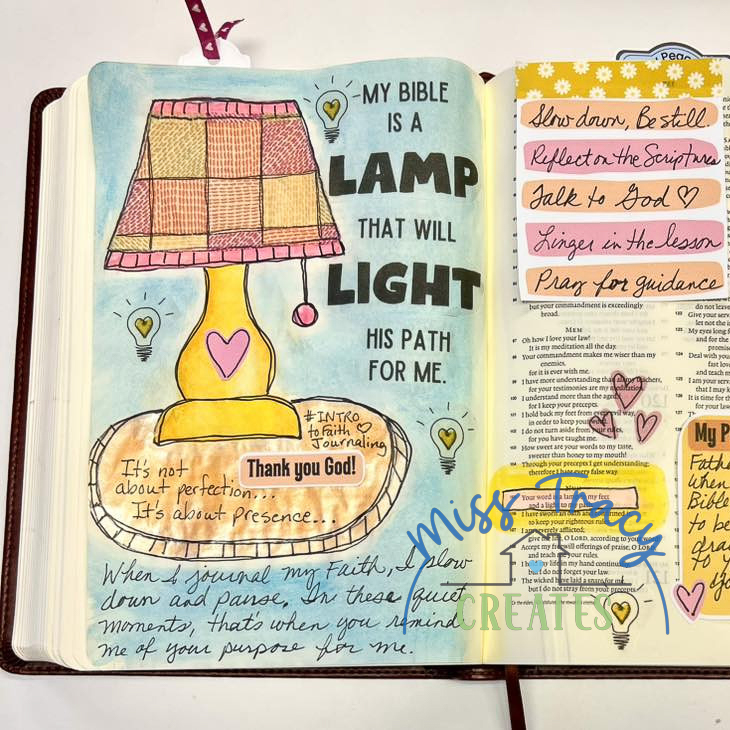 MY BIBLE
IS A
LAMP
THAT WILL
LIGHT
HIS PATH
FOR ME.
#INTRO
to Faith
Journaling
Thank you God!
It's not
about perfection...
It's about presence...
When I journal my Faith, I slow
down and pause. In these quiet
moments, that's when you remind
me of your purpose for me.
Peac
Slow down, Be still.
Reflect on the Scriptures
Talk to God
Linger in the lesson
Pray for guidance
but your commandment is exceedingly
broad.
MEM
97 Oh how I love your law!
It is my meditation all the day.
98 Your commandment makes me wiser than my
enemies,
for it is ever with me.
99 I have more understanding than all my teachers,
for your testimonies are my meditation.
100 I understand more than the aged,
for I keep your precepts.
101 I hold back my feet from every evil way,
in order to keep your word.
102 I do not turn aside from your rules,
for you have taught me.
103 How sweet are your words to my taste,
sweeter than honey to my mouth!
104 Through your precepts I get understanding;
therefore I hate every false way.
Your word is a lamp to my feet
and a light to my path.
I have sworn an oath and confirmed it,
to keep your righteous rules.
I am severely afflicted;
give me life, O LORD, according to your word!
Accept my freewill offerings of praise, O LORD,
and teach me your rules.
I hold my life in my hand continually,
but I do not forget your law.
The wicked have laid a snare for me,
but I do not stray from your precepts.
Miss Tracy
CREATES
My P
Fathe
when
Bible
to be
draw
to y